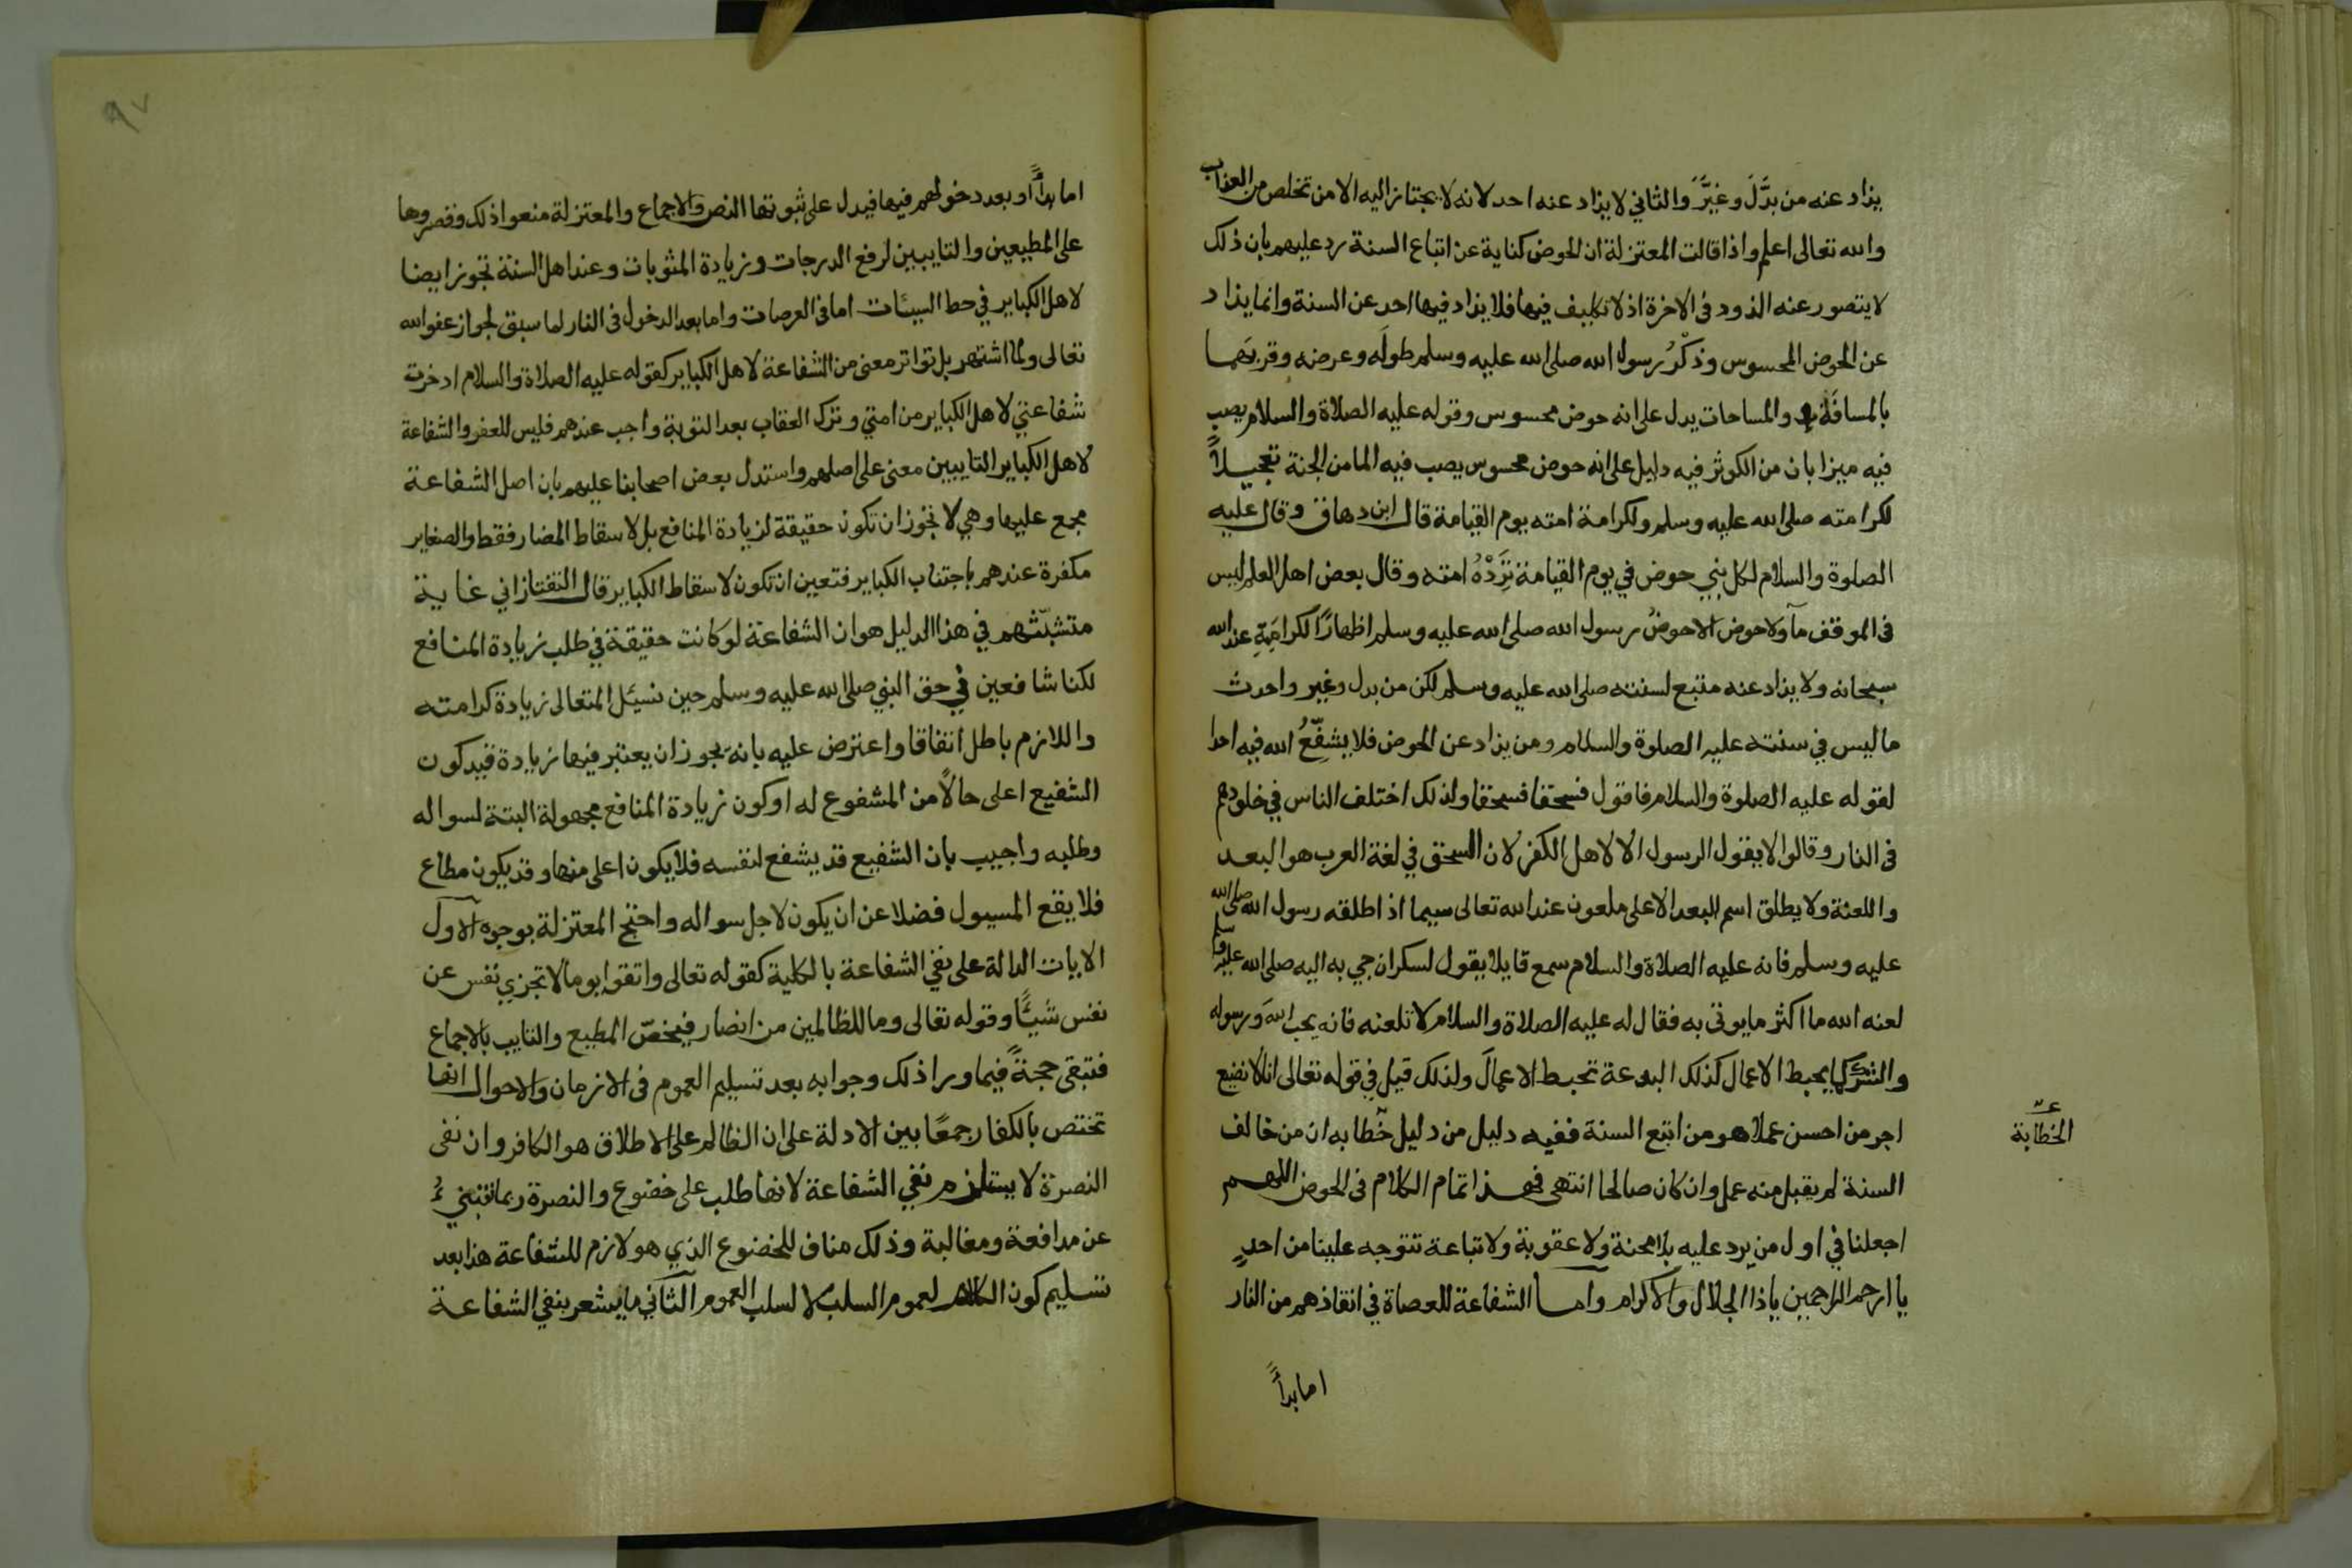 يذاد عنه من بدَّلَ وغيَّرَ والثاني لا يذاد عنه احد لانه لا يجتاز اليه الا من تخلص من العذاب
والله تعالى اعلم واذا قالت المعتزلة ان الحوض كناية عن اتباع السنة رد عليهم بان ذلك
لا يتصور عنه الذود فى الاخرة اذ لا تكليف فيها فلا يذاد فيها احد عن السنة وانما يذاد
عن الحوض المحسوس وذكْرُ رسول الله صلى الله عليه وسلم طولَه وعرضه وقربهما
بالمسافة والمساحات يدل على انه حوض محسوس وقوله عليه الصلاة والسلام يصب
فيه ميزابان من الكوثر فيه دليل على انه حوض محسوس يصب فيه الما من الجنة تعجيلاً
لكرامته صلى الله عليه وسلم ولكرامة امته يوم القيامة قال ابن دهاق وقال عليه
الصلوة والسلام لكل نبي حوض في يوم القيامة تَرِدُهُ امته وقال بعض اهل العلم ليس
فى الموقف مآ ولا حوض الا حوضُ رسول الله صلى الله عليه وسلم اظهارًا لكرامَتِهِ عند الله
سبحانه ولا يذاد عنه متبع لسنته صلى الله عليه وسلم لكن من بدل وغير واحدث
ما ليس في سنته عليه الصلوة والسلام ومن يذاد عن الحوض فلا يشفِّعُ الله فيه احدا
لقوله عليه الصلوة والسلام فاقول فسحقا فسحقا ولذلك اختلف الناس في خلودهم
فى النار وقالوا لا يقول الرسول الا لاهل الكفر لان السحق في لغة العرب هو البعد
واللعنة ولا يطلق اسم البعد الا على ملعون عند الله تعالى سيما اذا اطلقه رسول الله صلى الله
عليه وسلم فانه عليه الصلاة والسلام سمع قايلا يقول لسكران جي به اليه صلى الله عليه وسلم
لعنه الله ما اكثر ما يوتى به فقال له عليه الصلاة والسلام لا تلعنه فانه يحب اللهَ ورسوله
والشرك كما يحبط الاعمال كذلك البدعة تحبط الاعمالَ ولذلك قيل في قوله تعالى انا لا نضيع
اجر من احسن عملا هو من اتبع السنة ففيه دليل من دليل خطابه ان من خالف
السنة لم يقبل منه عمل وان كان صالحا انتهى فهذا تمام الكلام فى الحوض اللهم
اجعلنا في اول من يرد عليه بلا محنة ولا عقوبة ولا تباعة تتوجه علينا من احدٍ
يا ارحم الراحمين ياذا الجلال والاكرام وآما الشفاعة للعصاة في انقاذهم من النار
اما بدأً
الخطابة
٩٧
اما بدأً او بعد دخولهم فيها فيدل على ثبوتها النص والاجماع والمعتزلة منعوا ذلك وقصروها
على المطيعين والتايبين لرفع الدرجات وزيادة المثوبات وعند اهل السنة تجوز ايضا
لاهل الكباير في حط السيئات اما فى العرصات واما بعد الدخول فى النار لما سبق لجواز عفو الله
تعالى ولما اشتهر بل تواتر معنى من الشفاعة لاهل الكباير كقوله عليه الصلاة والسلام ادخرت
شفاعتي لاهل الكباير من امتي وترك العقاب بعد التوبة واجب عندهم فليس للعفو والشفاعة
لاهل الكباير التايبين معنى على اصلهم واستدل بعض اصحابنا عليهم بان اصل الشفاعة
مجمع عليها وهي لا تجوز ان تكون حقيقة لزيادة المنافع بل لاسقاط المضار فقط والصغاير
مكفرة عندهم باجتناب الكباير فتعين ان تكون لاسقاط الكباير قال التفتازاني غاية
متشبّثهم في هذا الدليل هو ان الشفاعة لو كانت حقيقة في طلب زيادة المنافع
لكنا شافعين في حق النبي صلى الله عليه وسلم حين نسئل المتعالى زيادة كرامته
واللازم باطل اتفاقا واعترض عليه بانه يجوز ان يعتبر فيها زيادة قيد كون
الشفيع اعلى حالاً من المشفوع له او كون زيادة المنافع مجهولة البتة لسواله
وطلبه واجيب بان الشفيع قد يشفع لنفسه فلا يكون اعلى منها وقد يكون مطاع
فلا يقع المسيول فضلا عن ان يكون لاجل سواله واحتج المعتزلة بوجوه الاول
الايات الدالة على نفي الشفاعة بالكلية كقوله تعالى واتقوا يوما لا تجزي نفس عن
نفس شيئًا وقوله تعالى وما للظالمين من انصار فيخصّ المطيع والتايب بالاجماع
فتبقى حجةً فيما ورا ذلك وجوابه بعد تسليم العموم فى الازمان والاحوال انها
تختص بالكفار جمعًا بين الادلة على ان الظالم على الاطلاق هو الكافر وان نفى
النصرة لا يستلزم نفي الشفاعة لانها طلب على خضوع والنصرة ربما تنبيءُ
عن مدافعة ومغالبة وذلك مناف للخضوع الذي هو لازم للشفاعة هذا بعد
تسليم كون الكلام لعموم السلب لا لسلب العموم الثاني ما يشعر بنفي الشفاعة